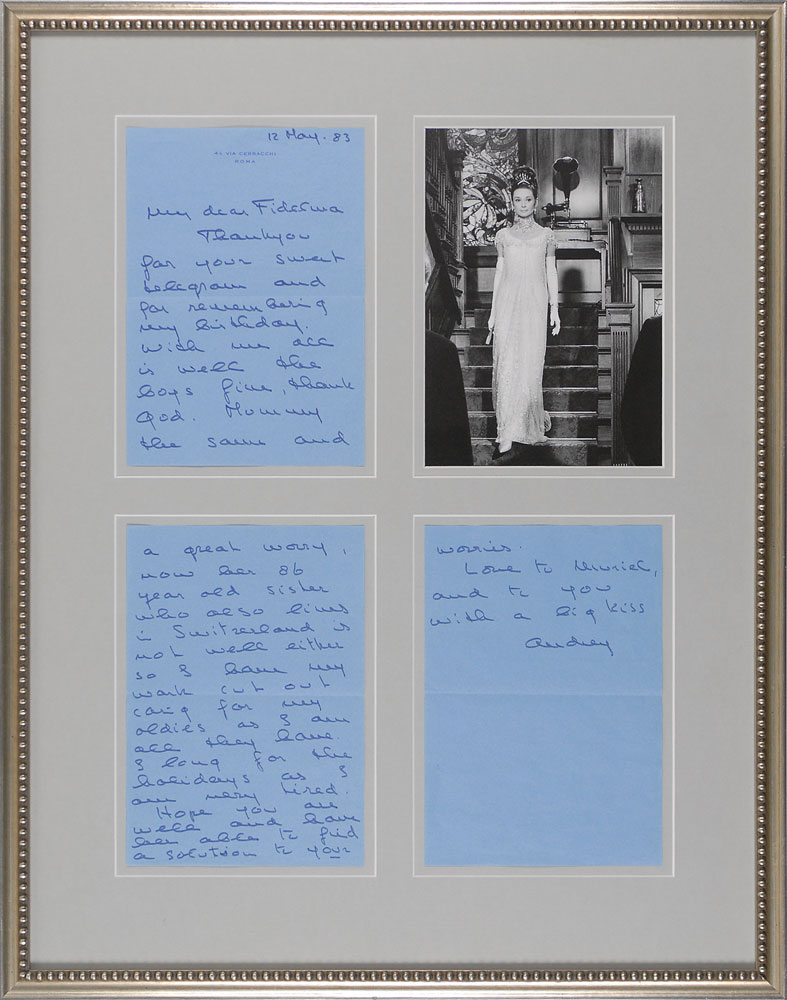 12 May. 83
VIA CERRACCHI
ROMA
My dear Fiderma
Thankyou
for your sweet
telegram and
for remembering
my birthday.
With me all
is well the
boys fine, thank
God. Mummy
the same and
a great worry,
now her 86
year old sister
who also lives
in Switzerland is
not well either
so I have my
work cut out
caring for my
oldies as I am
all they have.
I long for the
holidays as I
am very tired.
Hope you are
well and have
been able to find
a solution to your
worries.
Love to
and to you
with a big kiss
Audrey